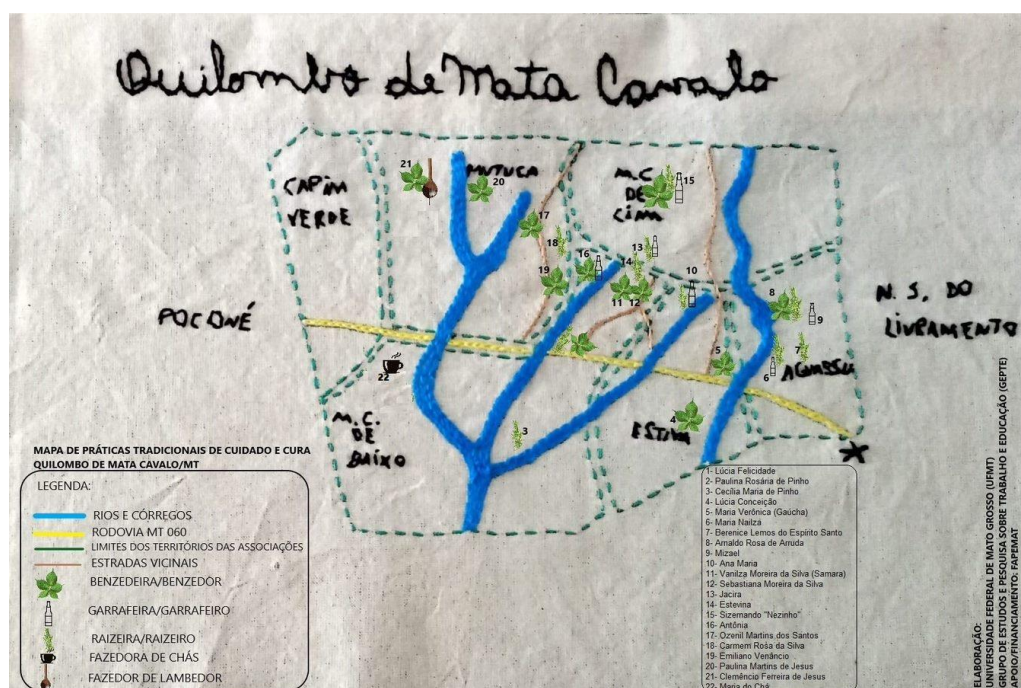 Quilombo de Mata Cavalo
CAPIM
VERDE
21
MUTUCA
20
M.C
DE
CIMA
15
17
18
16
13
14
19
11
12
10
8
9
N. S. DO
LIVRAMENTO
POCONÉ
22
5
7
6
AGUASSU
M.C.
DE
BAIXO
3
4
ESTIVA
MAPA DE PRÁTICAS TRADICIONAIS DE CUIDADO E CURA
QUILOMBO DE MATA CAVALO/MT
LEGENDA:
RIOS E CÓRREGOS
RODOVIA MT 060
LIMITES DOS TERRITÓRIOS DAS ASSOCIAÇÕES
ESTRADAS VICINAIS
BENZEDEIRA/BENZEDOR
GARRAFEIRA/GARRAFEIRO
RAIZEIRA/RAIZEIRO
FAZEDORA DE CHÁS
FAZEDOR DE LAMBEDOR
1- Lúcia Felicidade
2- Paulina Rosária de Pinho
3- Cecília Maria de Pinho
4- Lúcia Conceição
5- Maria Verônica (Gaúcha)
6- Maria Nailza
7- Berenice Lemos do Espírito Santo
8- Arnaldo Rosa de Arruda
9- Mizael
10- Ana Maria
11- Vanilza Moreira da Silva (Samara)
12- Sebastiana Moreira da Silva
13- Jacira
14- Estevina
15- Sizernando "Nezinho"
16- Antônia
17- Ozenil Martins dos Santos
18- Carmem Rosa da Silva
19- Emiliano Venâncio
20- Paulina Martins de Jesus
21- Clemêncio Ferreira de Jesus
22- Maria do Chá
ELABORAÇÃO:
UNIVERSIDADE FEDERAL DE MATO GROSSO (UFMT)
GRUPO DE ESTUDOS E PESQUISA SOBRE TRABALHO E EDUCAÇÃO (GEPTE)
APOIO/FINANCIAMENTO: FAPEMAT